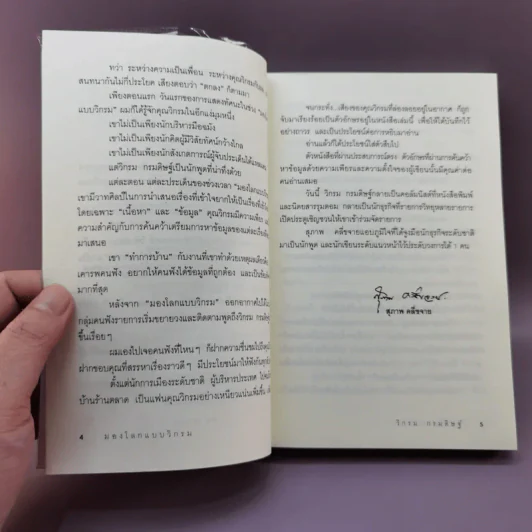 ทว่า ระหว่างความเป็นเพื่อน ระหว่างคุณวิกรมกับผม
สนทนากันไม่กี่ประโยค เสียงตอบว่า "ตกลง" ก็ตามมา
เพียงตอนแรก วันแรกของการแสดงทัศนะในช่วง
แบบวิกรม" ผมก็ได้รู้จักคุณวิกรมในอีกแง่มุมหนึ่ง
เขาไม่เป็นเพียงนักบริหารมือฉมัง
เขาไม่เป็นเพียงนักคิดผู้มีวิสัยทัศน์กว้างไกล
เขาไม่เป็นเพียงนักสังเกตการณ์ผู้จับประเด็นได้
แต่วิกรม กรมดิษฐ์เป็นนักพูดที่น่าทึ่งด้วย
แต่ละตอน แต่ละประเด็นของช่วงเวลา "มองโลก
เขามีวาทศิลป์ในการนำเสนอเรื่องที่เข้าใจยากให้เป็นเรื่องที่
โดยเฉพาะ "เนื้อหา" และ "ข้อมูล" คุณวิกรมมีความเพียร
ความสำคัญกับการค้นคว้าเตรียมการหาข้อมูลของแต่ละเรื่อง
มาเสนอ
เขา "ทำการบ้าน" กับงานที่เขาทำด้วยเหตุผลเดียว
เคารพคนฟัง อยากให้คนฟังได้ข้อมูลที่ถูกต้อง และเป็น
มากที่สุด
หลังจาก "มองโลกแบบวิกรม" ออกอากาศไปได้
กลุ่มคนฟังรายการเริ่มขยายวงและติดตามพูดถึงวิกรม กรมดิษฐ์
ขึ้นเรื่อยๆ
ผมเองไปเจอคนฟังที่ไหนๆ ก็ฝากความชื่นชมไปถึง
ฝากขอบคุณที่สรรหาเรื่องราวดีๆ มีประโยชน์มาให้ฟังกัน
ตั้งแต่นักการเมืองระดับชาติ ผู้บริหารประเทศ ไป
บ้านร้านตลาด เป็นแฟนคุณวิกรมอย่างเหนียวแน่นเพิ่มขึ้น
4 มองโลกแบบวิกรม
จนกระทั่ง...เสียงของคุณวิกรมที่ล่องลอยอยู่ในอากาศ ก็ถูก
จับมาเรียงร้อยเป็นตัวอักษรอยู่ในหนังสือเล่มนี้ เพื่อให้ได้บันทึกไว้
อย่างถาวร และเป็นประโยชน์ต่อการหยิบมาอ่าน
อ่านแล้วก็ได้ประโยชน์ใส่ตัวสืบไป
ตัวหนังสือที่ผ่านประสบการณ์ตรง ตัวอักษรที่ผ่านการค้นคว้า
หาข้อมูลด้วยความเพียร และความตั้งใจของผู้เขียนนั้นมีคุณค่าต่อ
คนอ่านเสมอ
วันนี้ วิกรม กรมดิษฐ์กลายเป็นคอลัมนิสต์ที่หนังสือพิมพ์
และนิตยสารรุมตอม กลายเป็นนักธุรกิจที่รายการวิทยุหลายรายการ
เปิดประตูเชิญชวนให้เขาเข้าร่วมจัดรายการ
สุภาพ คลี่ขจายแอบภูมิใจที่ได้จูงมือนักธุรกิจระดับชาติ
มาเป็นนักพูด และนักเขียนระดับแนวหน้าไว้ประดับวงการได้ 1 คน
สุภาพ คลี่ขจาย
สุภาพ คลี่ขจาย
วิกรม กรมดิษฐ์ 5